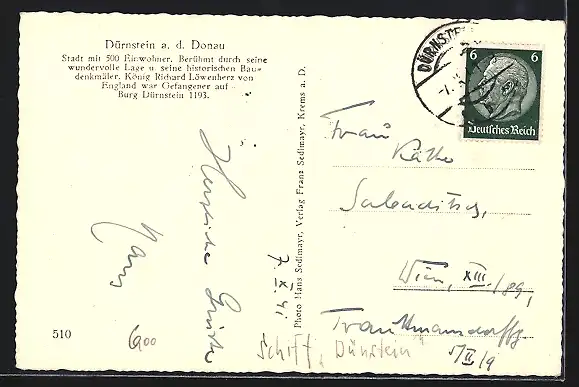 Dürnstein a. d. Donau
Stadt mit 500 Einwohner. Berühmt durch seine
wundervolle Lage u. seine historischen Bau-
denkmäler. König Richard Löwenherz von
England war Gefangener auf
Burg Dürnstein 1193.
Herzliche Grüße
Hans
7. IX 41
510
600
Photo Hans Sedlmayr, Verlag Franz Sedlmayr, Krems a. D.
DÜRNSTE
6 6
Deutsches Reich
Frau
Käthe
Wien, XIII./89,
Trauttmansdorffg
5/II/9
Schiff "Dürnstein"